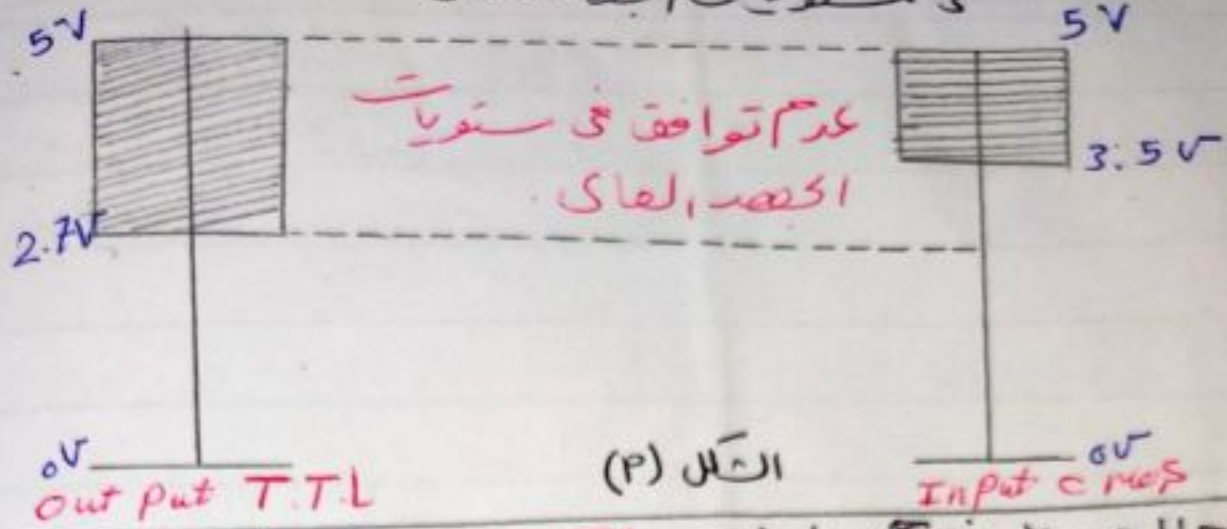 5V
5V
عدم توافق في مستويات
الجهد العالي
3.5V
2.7V
0V
0V
Out Put T.T.L
الشكل (P)
InPut c mos